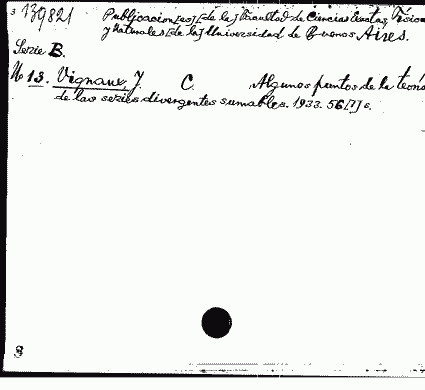 139821 Publicacion[es] [de la] Facultad de Ciencias Exactas, Físicas
y Naturales [de la] Universidad de Buenos Aires.
Serie B.
No 13. Vignaux, J. C. Algunos puntos de la teoría
de las series divergentes sumables. 1933. 56[1] s.